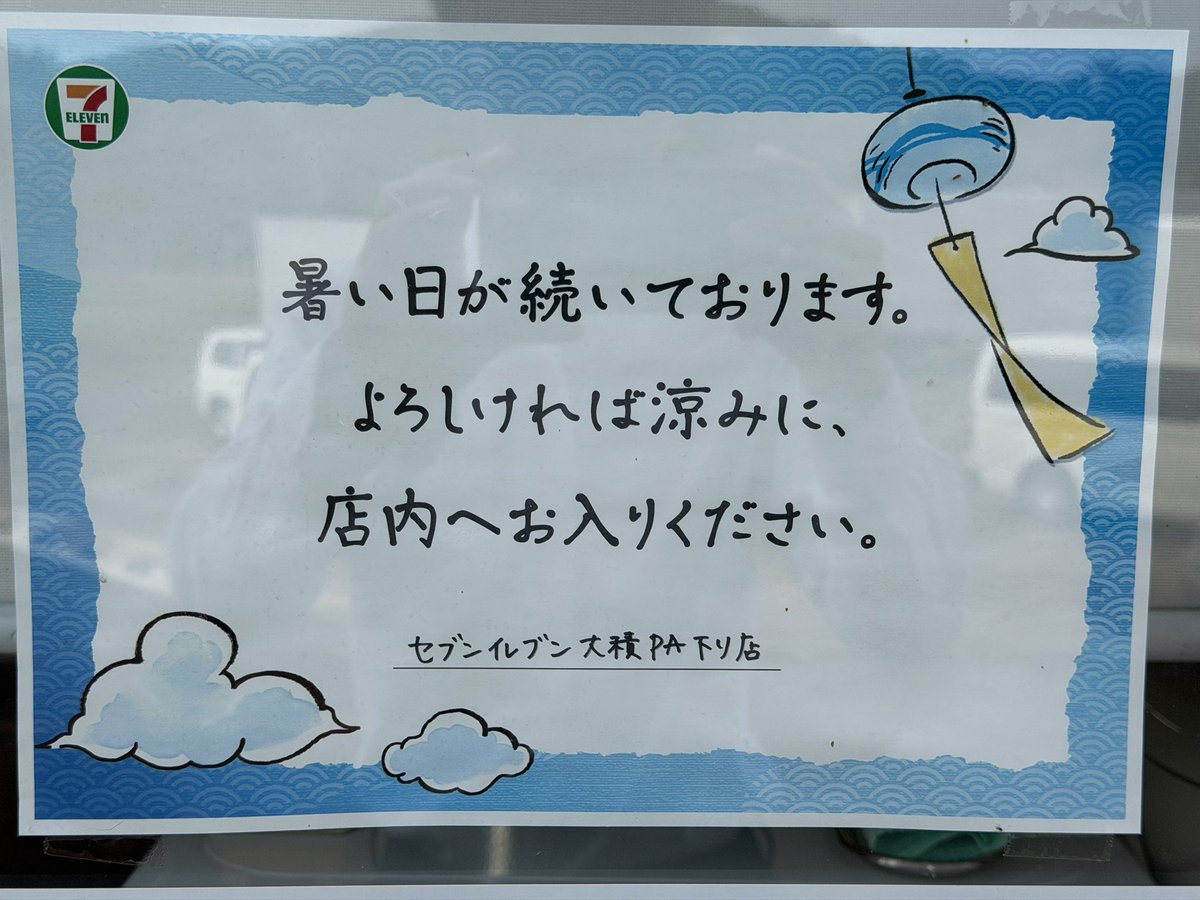 7
ELEVEn
暑い日が続いております。
よろしければ涼みに、
店内へお入りください。
セブンイレブン大積PA下り店